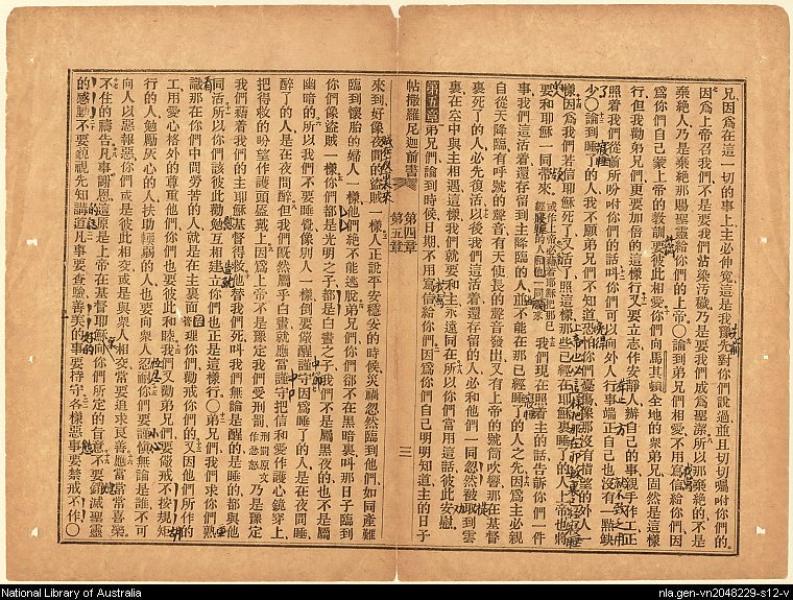 兄因爲在這一切的事上主必伸寃這是我豫先對你們說過並且切切囑咐你們的
因爲上帝召我們不是要我們沾染汚穢乃是要我們成爲聖潔所以那棄絶的不是
棄絶人乃是棄絶那賜聖靈給你們的上帝〇論到弟兄們相愛不用寫信給你們因
爲你們自己蒙上帝的教訓要彼此相愛你們向馬其頓全地的衆弟兄固然是這樣
行但我勸弟兄們更要加倍的這樣行又要立志作安靜人辦自己的事親手作工正
照着我們從前所吩咐你們的話叫你們可以向外人行事端正自己也沒有一點缺
少〇論到睡了的人我不願弟兄們不知道恐怕你們憂傷像那沒有指望的外人一
樣因爲我們若信耶穌死了又活了照這樣那些已經在耶穌裏睡了的人上帝也將
要和耶穌一同帶來 我們現在照着主的話告訴你們一件
事我們這活着還存留到主降臨的人並不能在那已經睡了的人之先因爲主必親
自從天降臨有呼號的聲音有天使長的聲音發出又有上帝的號筒吹響那在基督
裏死了的人必先復活以後我們這活着還存留的人必和他們一同忽然被取到雲
裏在空中與主相遇這樣我們就要和主永遠同在所以你們當用這話彼此安慰
第五章 弟兄們論到時候日期不用寫信給你們因爲你們自己明明知道主的日子
帖撒羅尼迦前書 第四章 第五章 三
來到好像夜間的盜賊一樣人正說平安穩妥的時候災禍忽然臨到他們如同產難
臨到懷胎的婦人一樣他們絶不能逃脫弟兄們你們卻不在黑暗裏叫那日子臨到
你們像盜賊一樣你們都是光明之子都是白晝之子我們不是屬黑夜的也不是屬
幽暗的所以我們不要睡覺像別人一樣倒要儆醒謹守因爲睡了的人是在夜間睡
醉了的人是在夜間醉但我們旣然屬乎白晝就應當謹守把信和愛作護心鏡穿上
把得救的盼望作護頭盔戴上因爲上帝不是豫定我們受刑罰 刑罰原文作忿怒 乃是豫定
我們藉着我們的主耶穌基督得救他替我們死叫我們無論是醒的是睡的都與他
同活所以你們該彼此勸勉互相建立你們也正是這樣行〇弟兄們我們求你們熟
識那在你們中間勞苦的人就是在主裏面 理你們勸戒你們的又因他們所作的
工用愛心格外的尊重他們你們也要彼此和睦我們又勸弟兄們要儆戒不按規矩
行的人勉勵灰心的人扶助輭弱的人也要向衆人忍耐你們要謹愼無論是誰不可
向人以惡報惡你們或是彼此相交或是與衆人相交常要追求良善應當常常喜樂
不住的禱告凡事謝恩這原是上帝在基督耶穌 向你們所定的旨意不要銷滅聖靈
的感動不要藐視先知講道凡事要查驗善美的事要持守各樣惡事要禁戒不作〇
National Library of Australia
nla.gen-vn2048229-s12-v